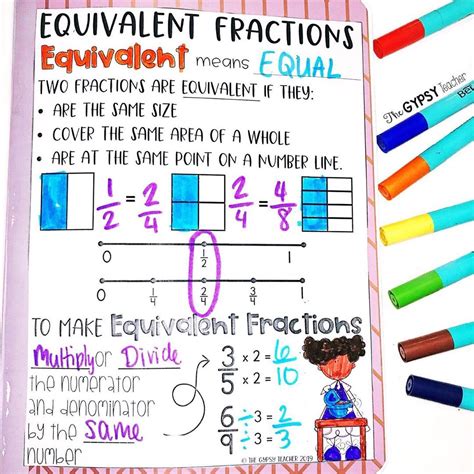 EQUIVALENT FRACTIONS
Equivalent means EQUAL
TWO FRACTIONS ARE EQUIVALENT IF THEY:
• ARE THE SAME SIZE
• COVER THE SAME AREA OF A WHOLE
• ARE AT THE SAME POINT ON A NUMBER LINE.
1/2 = 2/4 2/4 = 4/8
0 1/2 1
0 1/4 2/4 3/4 1
TO MAKE Equivalent Fractions
Multiply or Divide
the numerator
and denominator
by the same
number
3 × 2 = 6
5 × 2 = 10
6 ÷ 3 = 2
9 ÷ 3 = 3
© THE GYPSY TEACHER 2019
The GYPSY Teacher